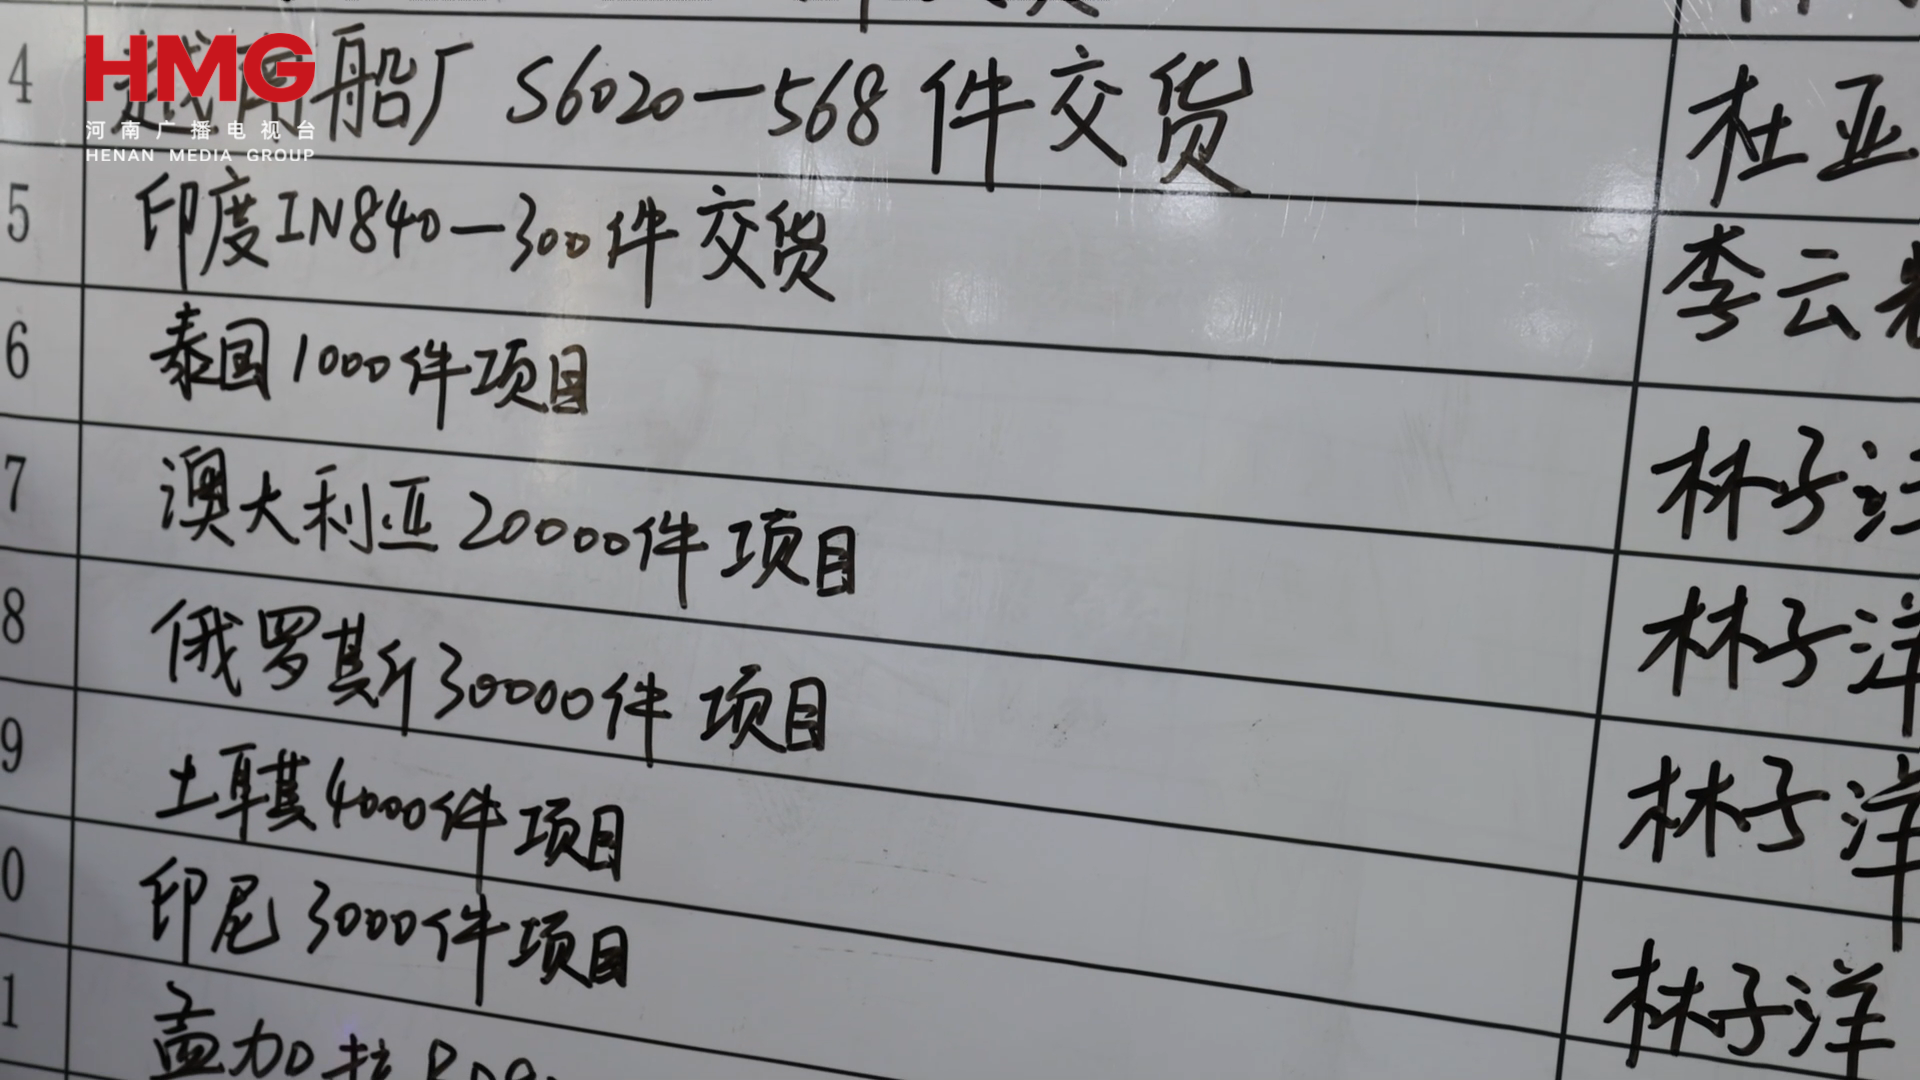 HMG
河南广播电视台
HENAN MEDIA GROUP
4 越南船厂 S6020—568件交货 杜亚
5 印度IN840—300件交货 李云
6 泰国1000件项目 林子洋
7 澳大利亚20000件项目 林子洋
8 俄罗斯30000件项目 林子洋
9 土耳其4000件项目 林子洋
0 印尼3000件项目
1 孟加拉